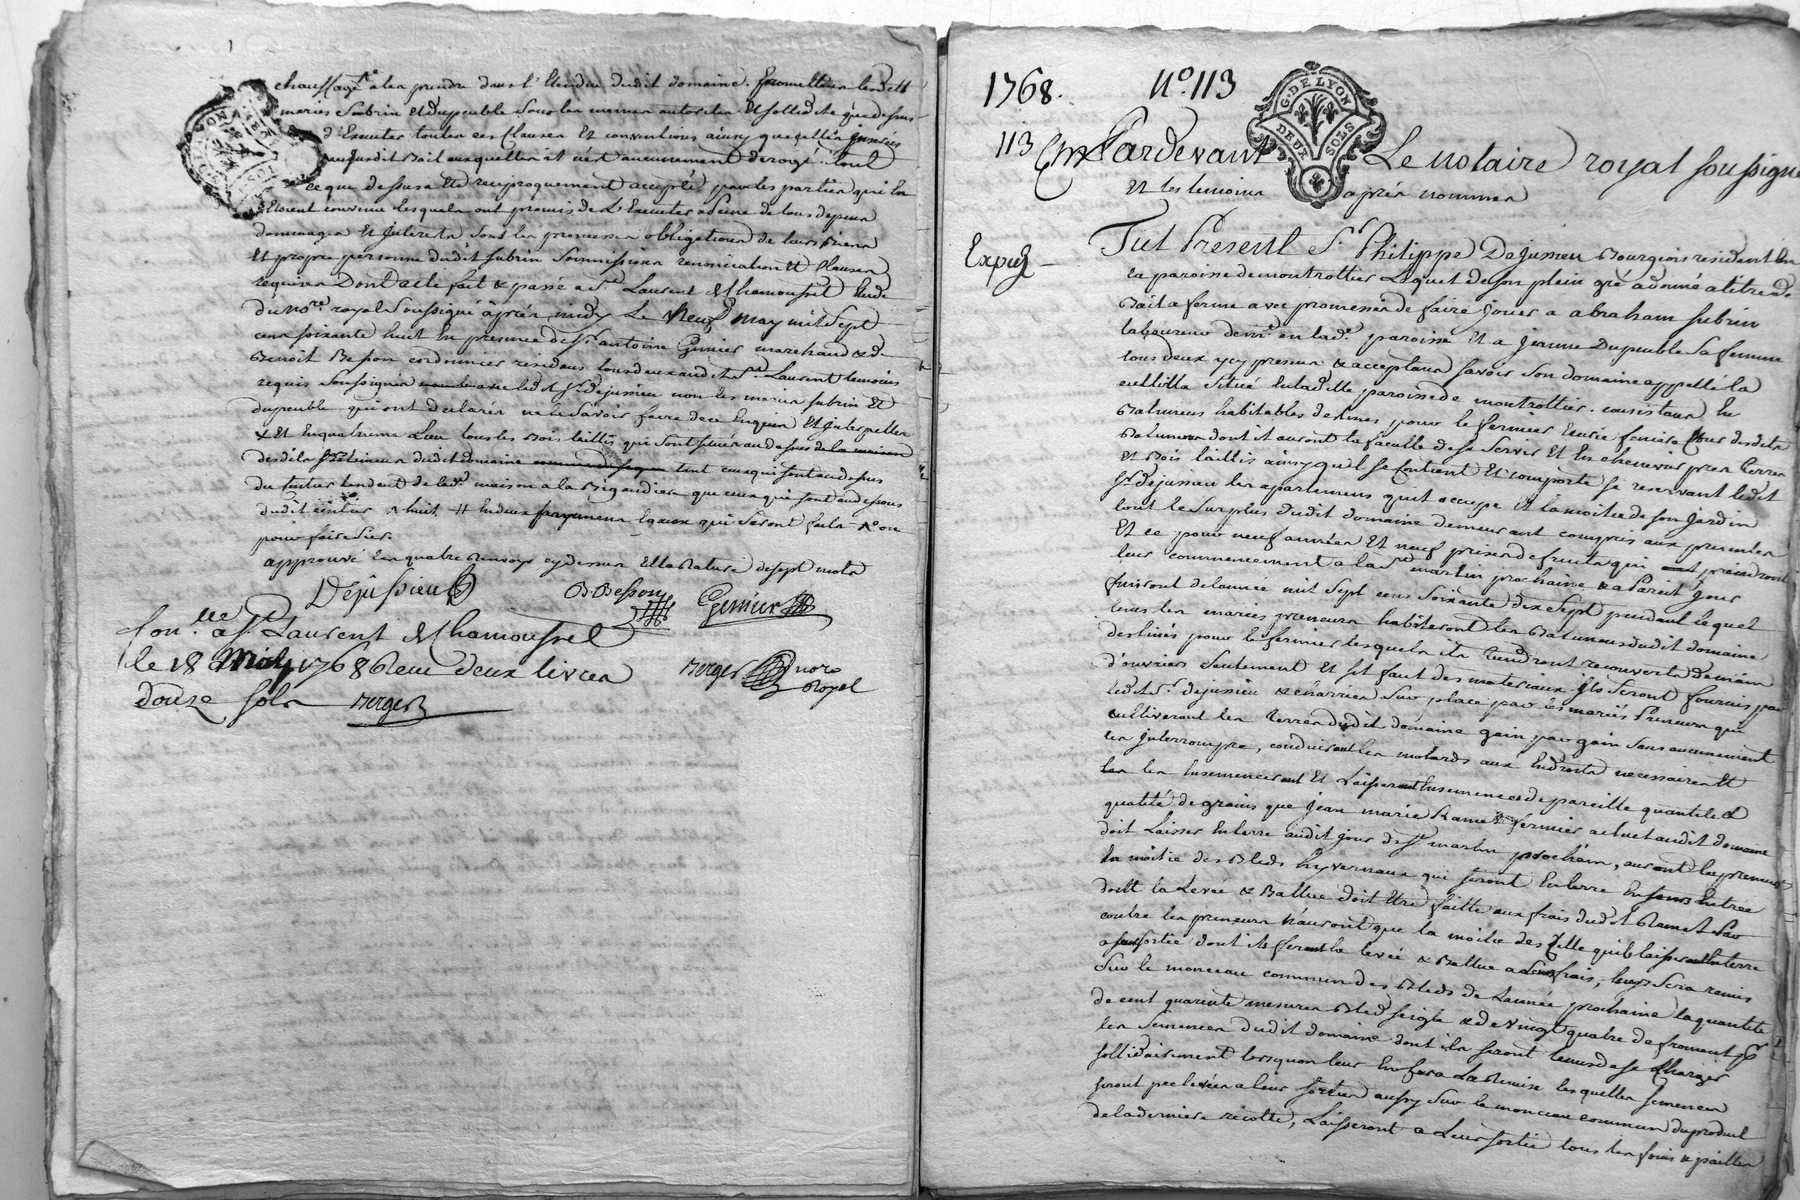 chauffage a les prendre dans l'Etendue dudit domaine. promettans lesdits
mariés subrin et dupeuble sous les memes autorités et sollidité que dessus
d'Executer toutes ces clauses Et conventions ainsy que celles inserées
audit Bail auxquelles il n'est aucunement derogé. tout
ce que dessus a été reciproquement accepté par les parties qui en
Etoient convenu lesquels ont promis de L'Executer a peine de tous depens
dommages Et interets sous les promesses obligations de leurs Biens
Et propre personne dudit subrin soumissions renonciations Et clauses
requises Dont acte fait & passé a St Laurent de Chamousset Etude
du nore royal soussigné après midy Le Neuf may mil sept
cens soixante huit En presence de Sr antoine Genier marchand & de
Benoit Besson cordonnier residans tous deux audit St Laurent temoins
requis soussignés avec led. Sr dejussieu non les mariés subrin Et
dupeuble qui ont declarés ne le savoir faire de ce Enquis Et interpellés
x Et En quatrieme Lieu tous les Bois taillis qui sont situés au dessous de la maison
desdits dudit domaine tant ceux qui sont au dessus
du sentier tendent de lade maison a la Bigaudiere que ceux qui sont au dessous
dudit sentier. x huit. # En deux payemens Egaux qui seront faits x ou
pour faire scier
approuvé les quatre Renvoys cy dessus Et la Rature de sept mots
Dejussieu B Besson Genier
Con.lle a St Laurent de Chamousset
le 18 May 1768 Reçu deux livres Berger nore
douze sols Berger Royal
G. DE LYON
DEUX SOLS
1768. No. 113
113 Pardevant Le notaire royal soussigné
Et les temoins après nommés
Expié
Fut Present Sr Philippe Dejussieu Bourgeois resident En
la paroisse de montrottier Lequel de son plein gré a donné a titre de
Bail a ferme avec promesse de faire jouir a abraham subrin
laboureur demt en lade paroisse Et a jeanne Dupeuble sa femme
tous deux icy presens & acceptans savoir son domaine appellé la
situé En ladite paroisse de montrottier. consistant En
Batimens habitables destinés pour le fermier Ecurie feniere cour desdits
Batimens dont ils auront la faculté de se servir Et En cheneviers prés terres
Et Bois taillis ainsy qu'il se Contient Et comporte se reservant ledit
Sr dejussieu les apartemens qu'il occupe Et la moitié de son jardin
tout le surplus dudit domaine demeurant compris aux presentes
Et ce pour neuf années Et neuf prises de fruits qui prendront
leur commencement a la St martin prochaine & a Pareil jour
finiront de l'année mil sept cens soixante dix sept pendant lequel
tems les mariés preneurs habiteront les Batimens dudit domaine
destinés pour le fermier lesquels ils tiendront recouverts de main
d'ouvriers seulement Et s'il faut des materiaux ils seront fournis par
ledit Sr dejussieu & charriés sur place par les mariés Preneurs qui
cultiveront les terres dudit domaine gain par gain sans aucunement
les interrompre, conduiront les motards aux Endroits necessaires Et
les Ensemenceront Et Laisseront Ensemencés de pareille quantité &
qualité de grains que jean marie Ramet fermier actuel audit domaine
doit Laisser En terre audit jour de St martin prochain, auront les preneurs
la moitié des Bleds hyvernaux qui seront En terre En leur Entrée
dont la Levée & Battue doit Etre faitte aux frais dudit Ramet par
contre les preneurs n'auront que la moitié des Bleds qu'ils laisseront En terre
a leur sortie dont ils feront la levée & Battue a Leurs frais, leur sera remis
sur le monceau commun des Bleds de L'année prochaine la quantité
de cent quarente mesures Bled seigle & de vingt quatre de froment pr
les semences dudit domaine dont ils seront tenus de se charger
sollidairement lorsqu'on leur En fera La Remise lesquelles semences
seront prelevées a leur sortie aussy sur le monceau commun du produit
de la derniere récolte, Laisseront a Leur sortie tous les foins & pailles